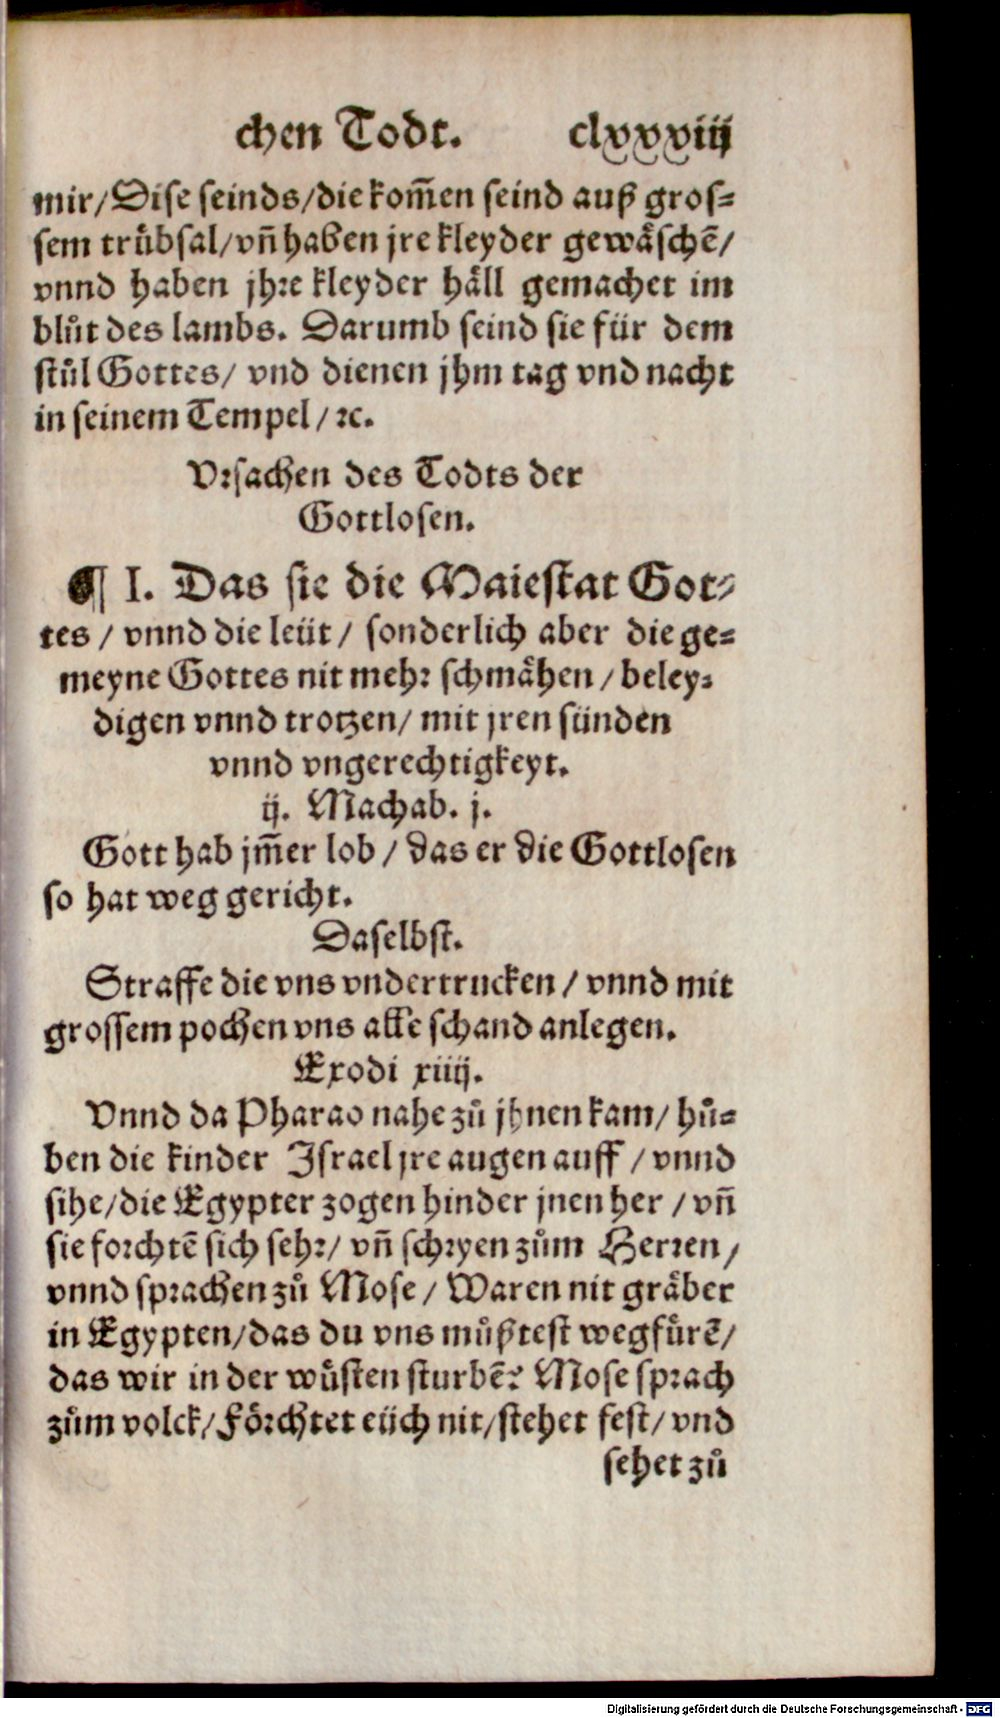 chen Todt. clxxxiij
mir/Dise seinds/die kom̃en seind auß gros=
sem trübsal/vñ haben jre kleyder gewäschẽ/
vnnd haben jhre kleyder häll gemachet im
blůt des lambs. Darumb seind sie für dem
stůl Gottes/ vnd dienen jhm tag vnd nacht
in seinem Tempel/ ꝛc.
Vrsachen des Todts der
Gottlosen.
¶ I. Das sie die Maiestat Got=
tes/ vnnd die leüt/ sonderlich aber die ge=
meyne Gottes nit mehr schmähen/ beley=
digen vnnd trotzen/ mit jren sünden
vnnd vngerechtigkeyt.
ij. Machab. j.
Gott hab jm̃er lob/ das er die Gottlosen
so hat weg gericht.
Daselbst.
Straffe die vns vndertrucken/ vnnd mit
grossem pochen vns alle schand anlegen.
Exodi xiiij.
Vnnd da Pharao nahe zů jhnen kam/ hů=
ben die kinder Israel jre augen auff/ vnnd
sihe/die Egypter zogen hinder jnen her/ vñ
sie forchtẽ sich sehr/ vñ schryen zům Herren/
vnnd sprachen zů Mose/ Waren nit gräber
in Egypten/das du vns můßtest wegfürẽ/
das wir in der wüsten sturbẽ? Mose sprach
zům volck/Förchtet eüch nit/stehet fest/ vnd
sehet zů
Digitalisierung gefördert durch die Deutsche Forschungsgemeinschaft - DFG